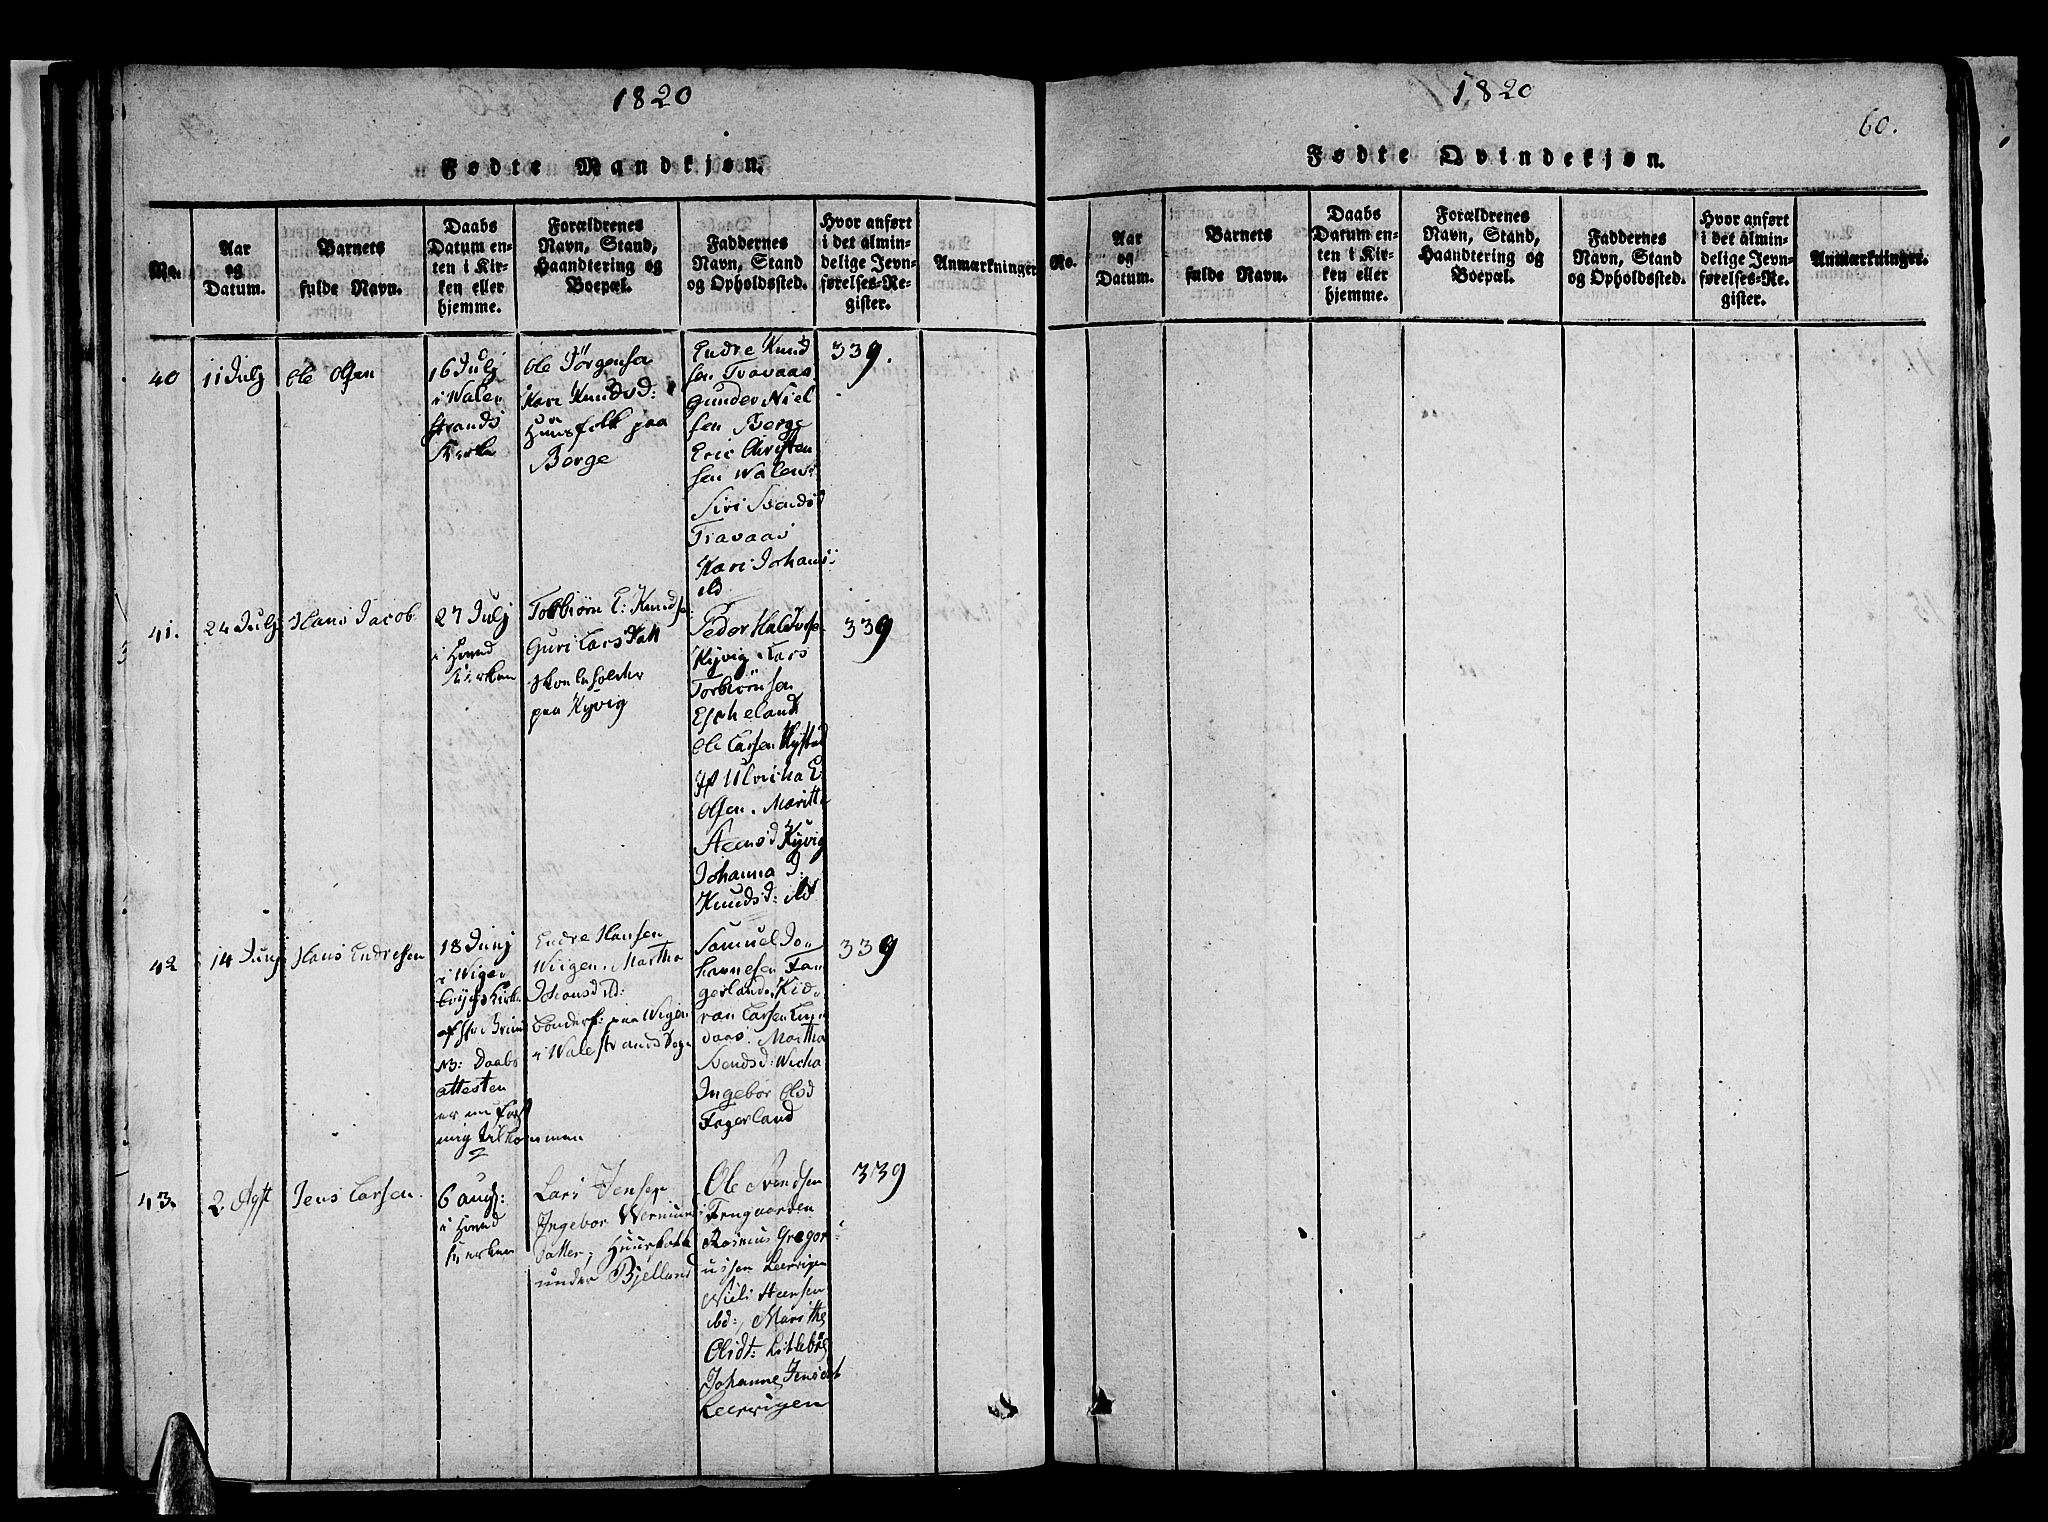 1820
Fødte Mandkjøn.
No.
Aar
og
Datum.
Barnets
fulde Navn.
Daabs
Datum en-
ten i Kir-
ken eller
hjemme.
Forældrenes
Navn, Stand,
Haandtering og
Boepæl.
Faddernes
Navn, Stand
og Opholdssted.
Hvor anført
i det almin-
delige Jevn-
førelses-Re-
gister.
Anmærkninger
40
11 Julj
Ole Olsen
16 Julj
i Wale
strands
Kirke
Ole Jörgensen
Kari Knudsd:
Huusfolk paa
Borge
Endre Knud
sen Travaas
Gunder Niel
sen Borge
Eric Christen
sen Walen
Siri Svendsd
Travaas
Kari Johans
ibd
339.
41.
24 Julj
Hans Jacob
27 Julj
i Hovud
kirken
Torbiörn E: Knudsen
Guri Lars Datt
Skoleholder
paa Kyvig
Peder Haldorsen
Kyvig. Lars
Torbiörnsen
Escheland
Ole Larsen
Ulricha E
Olsen. Maritte
Kyvig
Johanna J:
Knudsd: ibd
339
42
14 Junj
Hans Endresen
18 Junj
i Wige
Kirke
af Hr: Bruun
NB: Daabs
attesten
er nu först
mig tilkommen
Endre Hansen
Wigen. Martha
Johansd:
bonderf: paa Wigen
i Walestrands Sogn
Samuel Jo
hannesen Fa
gerland,
Larsen
Martha
Svendsd: Wicha
Ingebor Olsd
Fagerland
339
43.
2 Agst
Jens Larsen.
6 augs:
i Hovud
kirken
Lars Jensen
Ingebor Wermund
Datter, Huusfolk
under Bjelland
Ole Svendsen
Frugaarden
Rasmus Gregor
iussen Leervigen
Niels Hansen
ibd:, Marithe
Olsdt: Litlebøe
Johanne Jensdat
Leervigen
339
1820
60.
Fødte Qvindekjøn.
No.
Aar
og
Datum.
Barnets
fulde Navn.
Daabs
Datum en-
ten i Kir-
ken eller
hjemme.
Forældrenes
Navn, Stand,
Haandtering og
Boepæl.
Faddernes
Navn, Stand
og Opholdssted.
Hvor anført
i det almin-
delige Jevn-
førelses-Re-
gister.
Anmærkninger.